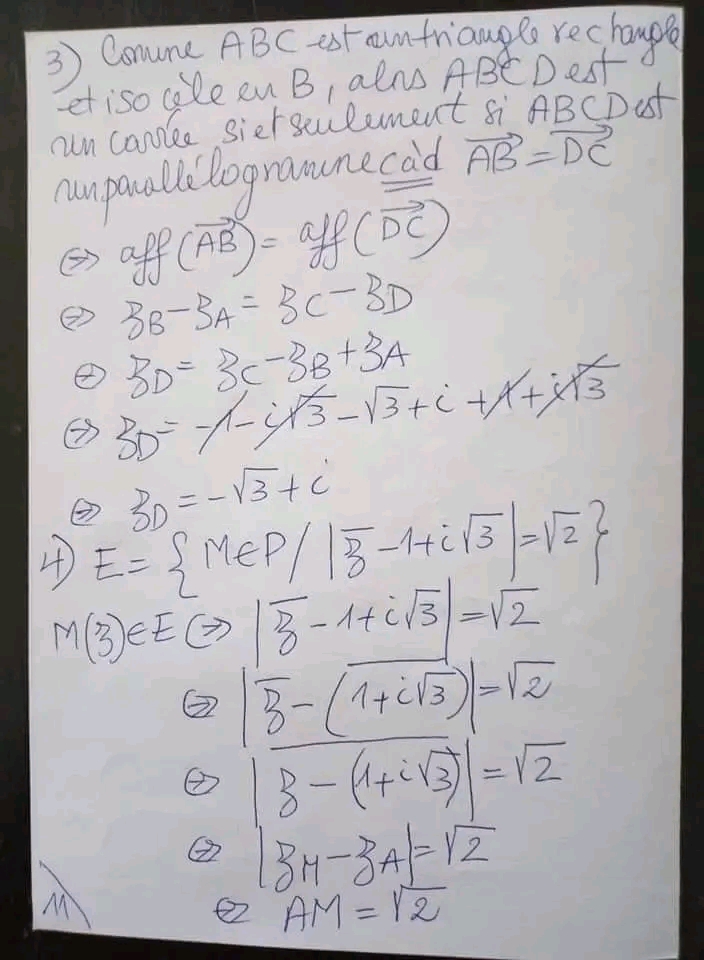 3) Comme ABC est un triangle rectangle
et isocèle en B, alors ABCD est
un carrée si et seulement si ABCD est
un parallélogramme càd \overrightarrow{AB} = \overrightarrow{DC}
⇔ aff(\overrightarrow{AB}) = aff(\overrightarrow{DC})
⇔ z_B - z_A = z_C - z_D
⇔ z_D = z_C - z_B + z_A
⇔ z_D = -1 - i√3 - √3 + i + 1 + i√3
⇔ z_D = -√3 + i
4) E = { M∈P / |\overline{z} - 1 + i√3| = √2 }
M(z)∈E ⇔ |\overline{z} - 1 + i√3| = √2
⇔ |\overline{z} - (\overline{1 + i√3})| = √2
⇔ |\overline{z - (1 + i√3)}| = √2
⇔ |z_M - z_A| = √2
⇔ AM = √2
11